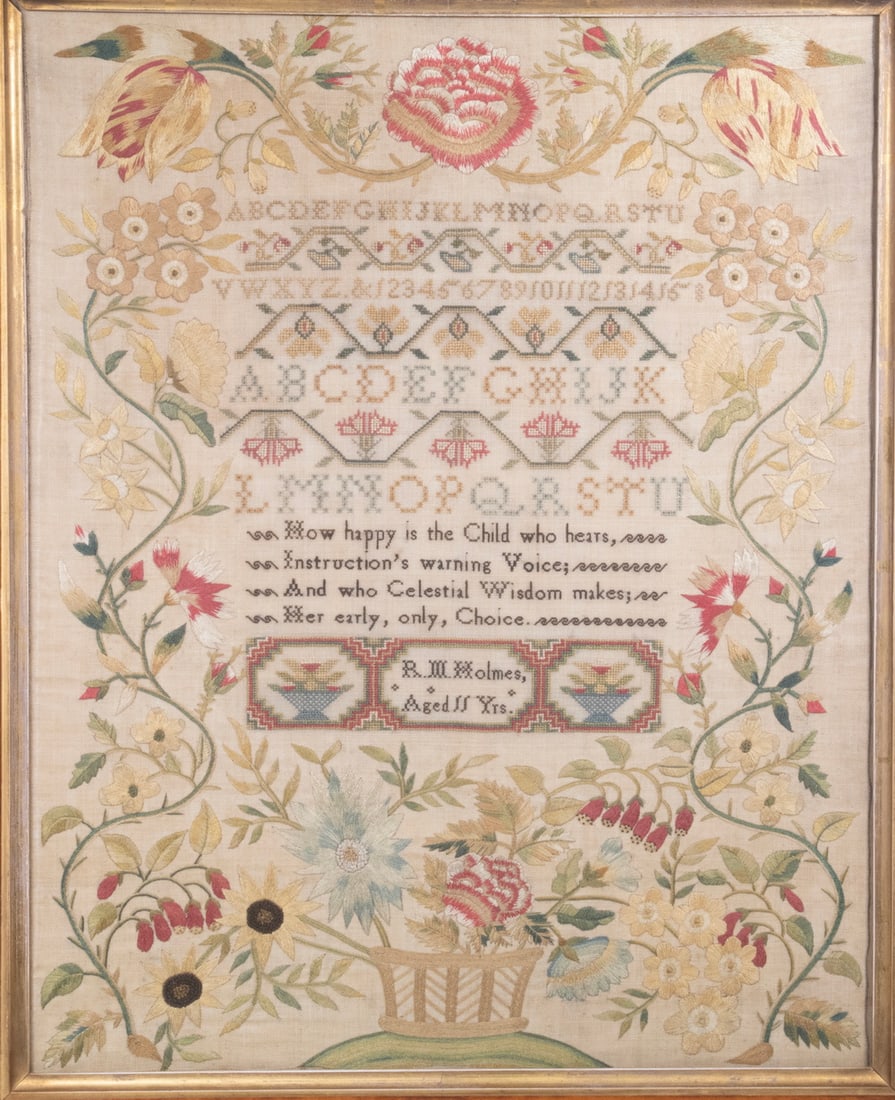 ABCDEFGHIJKLMNOPQRSTU
VWXYZ.&1234567891011121314158
ABCDEFGHIJK
LMNOPQRSTU
How happy is the Child who hears,
Instruction's warning Voice;
And who Celestial Wisdom makes;
Her early, only, Choice.
R.M Holmes,
Aged 11 Yrs.